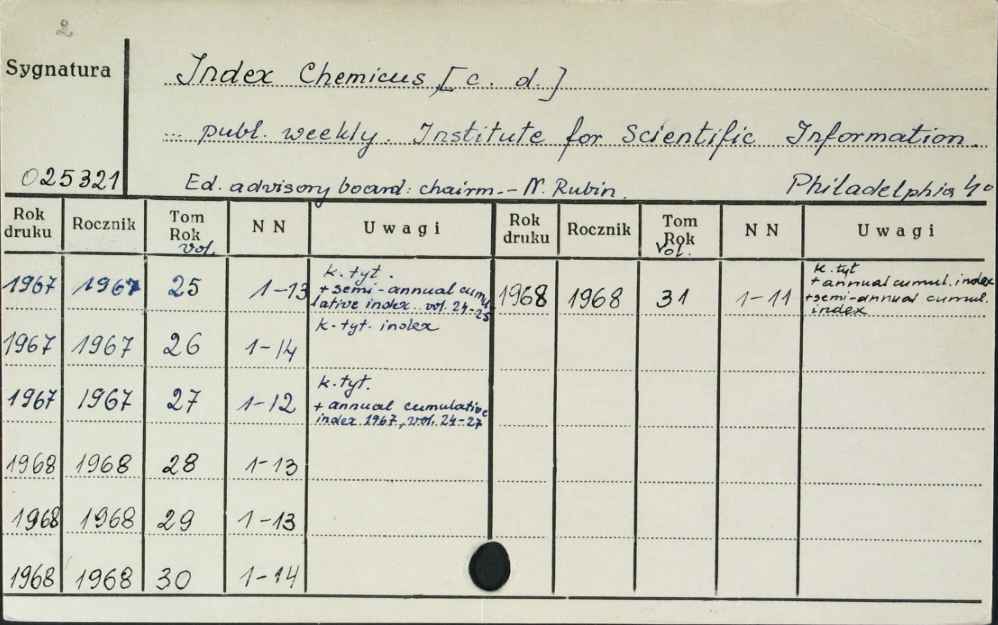 2
Sygnatura
Index Chemicus [c. d.]
... publ. weekly. Institute for Scientific Information.
025321
Ed. advisory board: chairm. - M. Rubin. Philadelphia 4°
Rok druku Rocznik Tom Rok vol. N N Uwagi Rok druku Rocznik Tom Rok Vol. N N Uwagi
1967 1967 25 1-13 k. tyt. + semi-annual cumulative index. vol. 24-25
1968 1968 31 1-11 k. tyt + annual cumul. index + semi-annual cumul. index
1967 1967 26 1-14 k. tyt. index
1967 1967 27 1-12 k. tyt. + annual cumulative index 1967, vol. 24-27
1968 1968 28 1-13
1968 1968 29 1-13
1968 1968 30 1-14